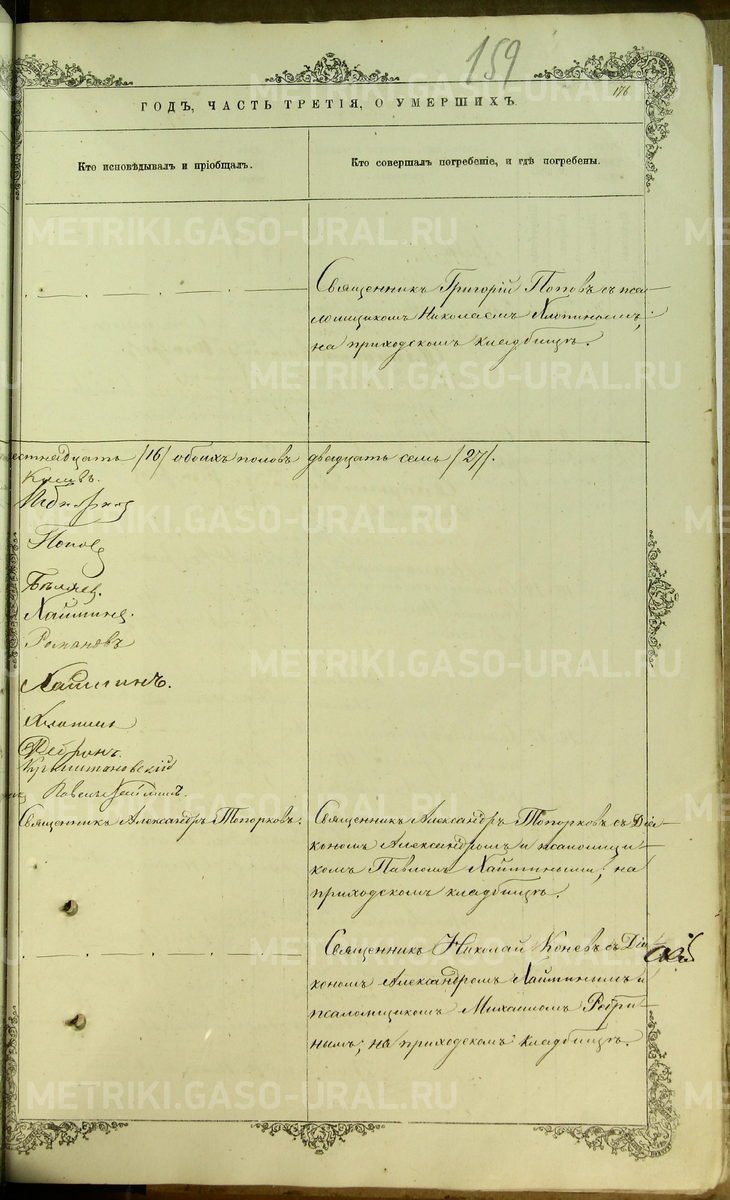 159
176
ГОДЪ, ЧАСТЬ ТРЕТІЯ, О УМЕРШИХЪ.
Кто исповѣдывалъ и пріобщалъ.
Кто совершалъ погребеніе, и гдѣ погребены.
Священникъ Григорій Поповъ съ пса-
ломщикомъ Николаемъ Хлопинымъ;
на приходскомъ кладбищѣ.
естнадцать /16/ обоихъ половъ двадцать семь /27/.
Поповъ
Бѣляев.
Хайминъ.
Романовъ
Хайминъ.
Хлопинъ
Павелъ Хайминъ.
Священникъ Александръ Топорковъ.
Священникъ Александръ Топорковъ съ Діа-
кономъ Александромъ и псаломщи-
комъ Павломъ Хаймиными; на
приходскомъ кладбищѣ.
Священникъ Николай Коневъ съ Діа-
кономъ Александромъ Хайминымъ и
псаломщикомъ Михаиломъ Ребри-
нымъ; на приходскомъ кладбищѣ.
METRIKI.GASO-URAL.RU